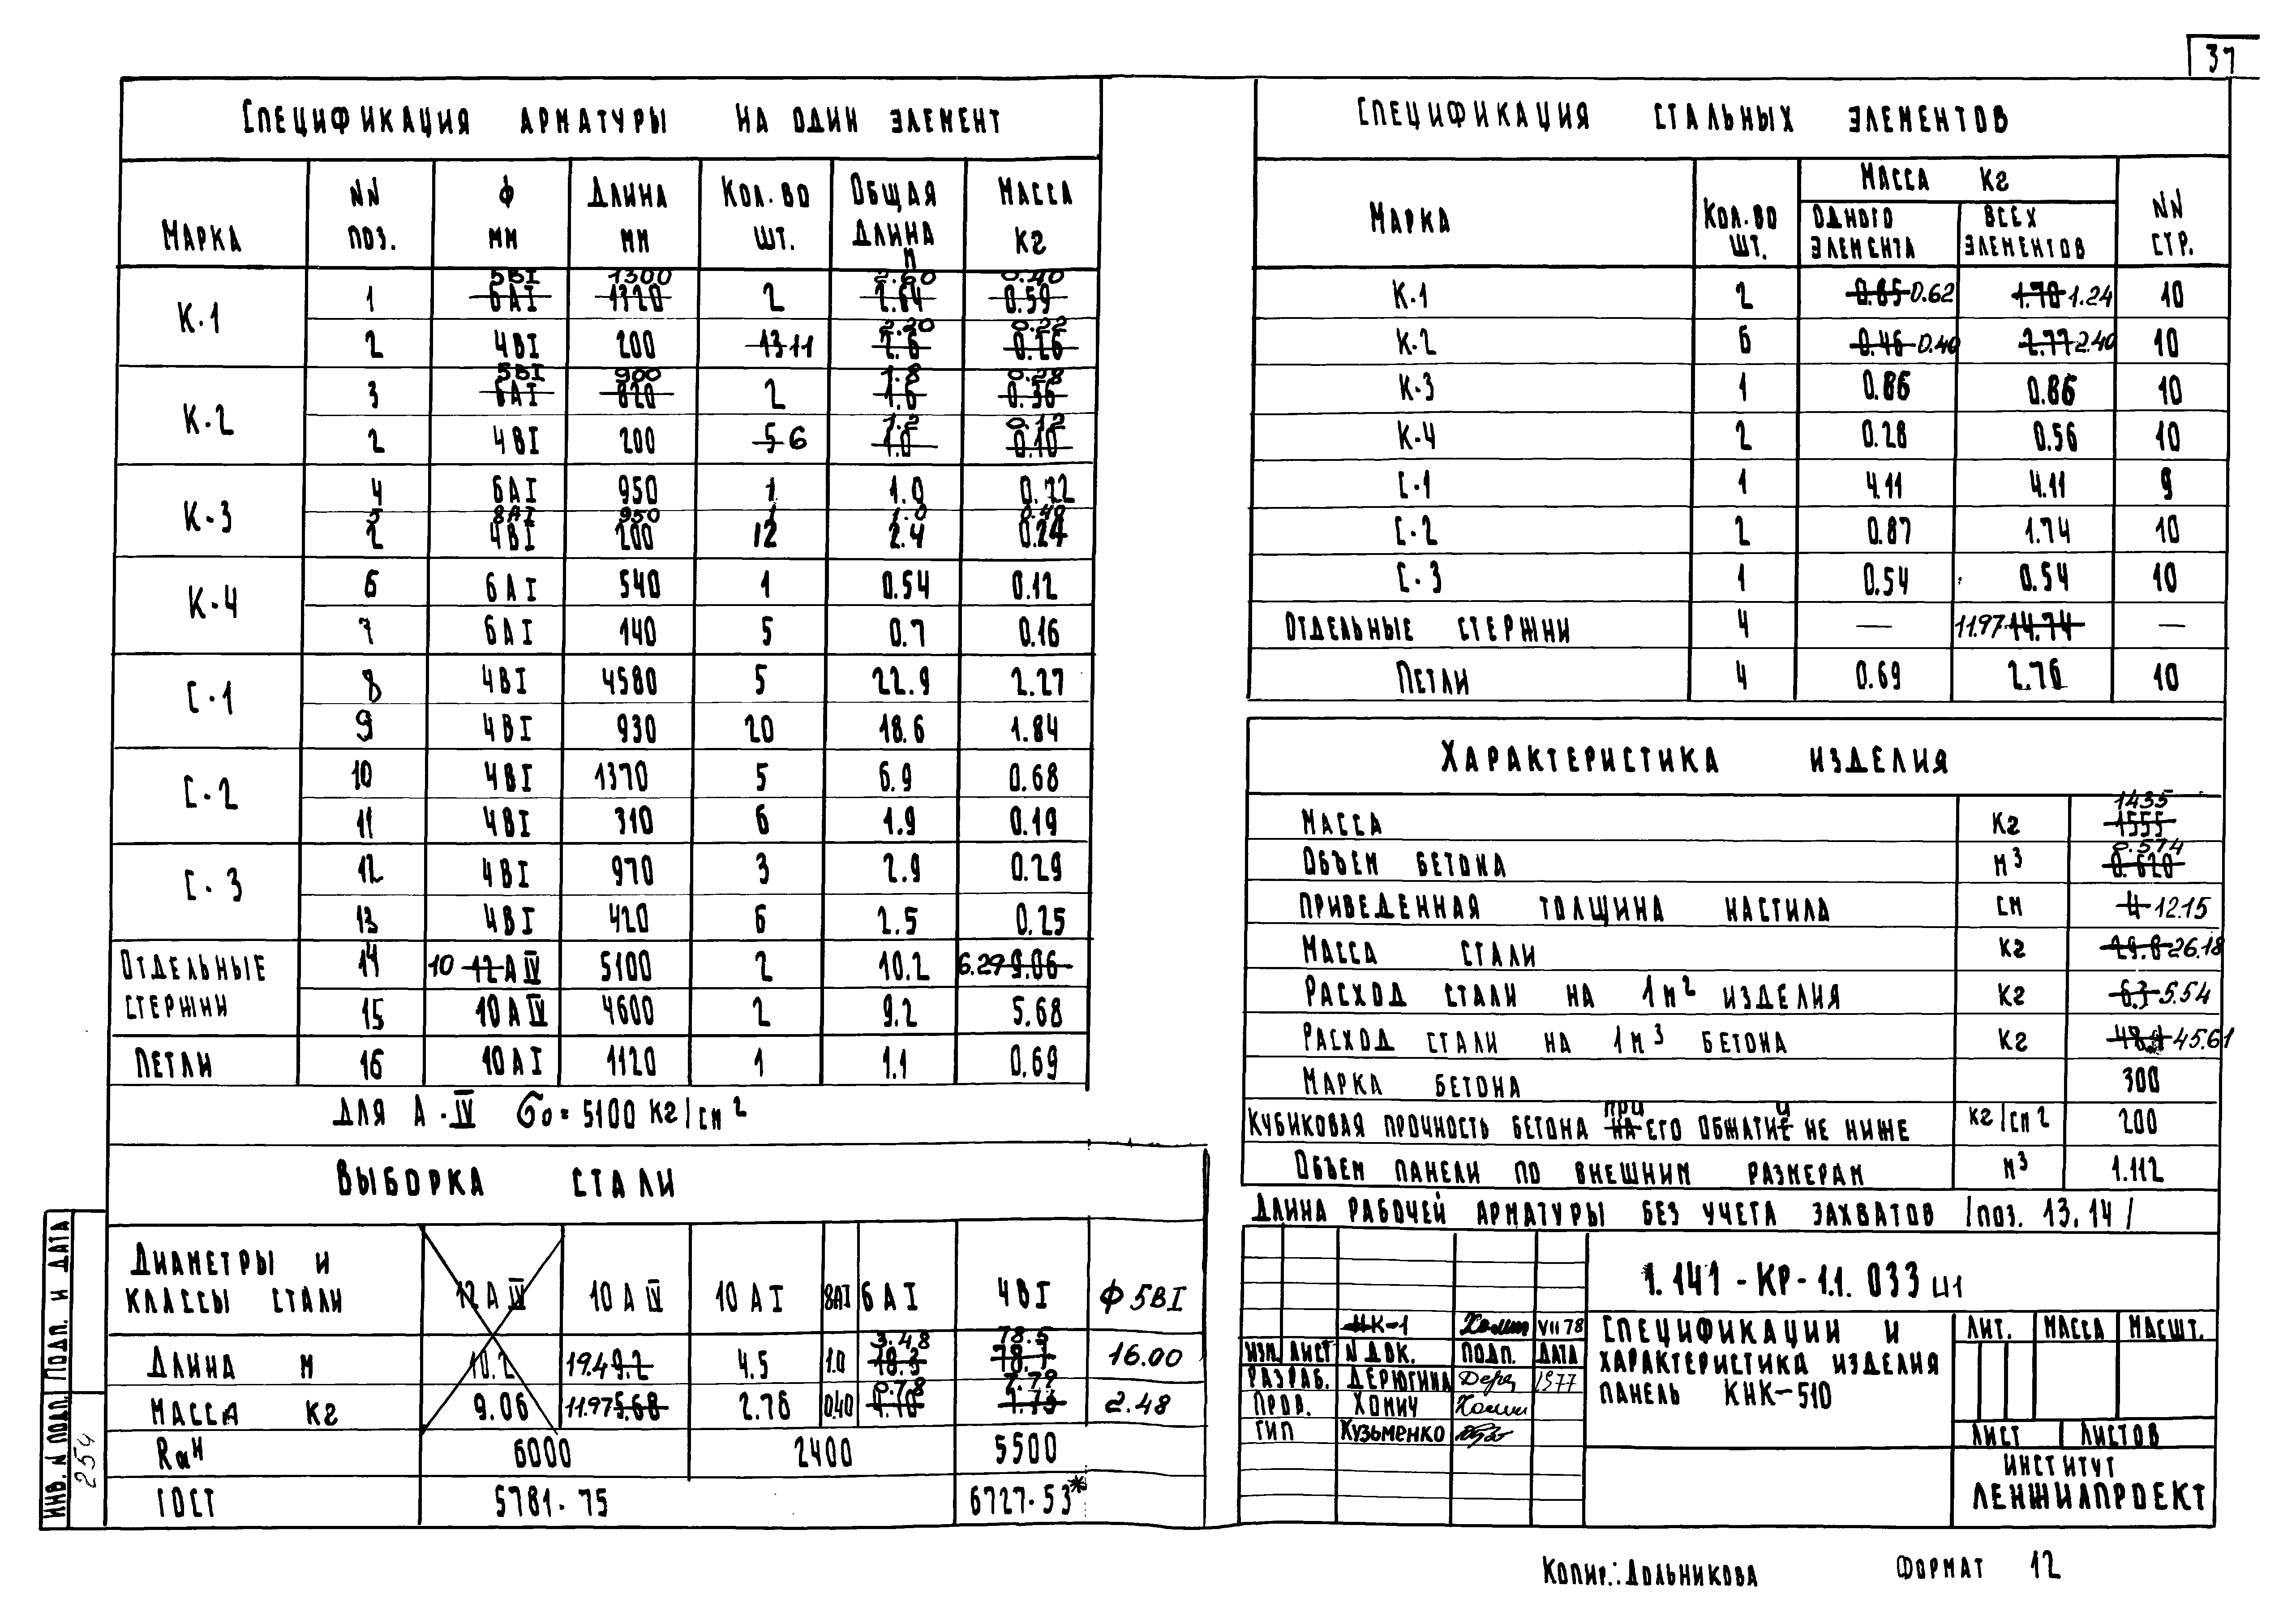 37
СПЕЦИФИКАЦИЯ АРМАТУРЫ НА ОДИН ЭЛЕМЕНТ
МАРКА NN ПОЗ. Ф ММ ДЛИНА ММ КОЛ-ВО ШТ. ОБЩАЯ ДЛИНА М МАССА КГ
5ВI 1300 2.60 0.40
К-1 1 6АI 1320 2 2.64 0.59
2.20 0.22
2 4ВI 200 13 11 2.6 0.26
5ВI 900 1.8 0.28
К-2 3 6АI 820 2 1.6 0.36
1.2 0.12
2 4ВI 200 5 6 1.0 0.10
К-3 4 6АI 950 1 1.0 0.22
5 8АI 950 1 1.0 0.40
2 4ВI 200 12 2.4 0.24
К-4 6 6АI 540 1 0.54 0.12
7 6АI 140 5 0.7 0.16
С-1 8 4ВI 4580 5 22.9 2.27
9 4ВI 930 20 18.6 1.84
С-2 10 4ВI 1370 5 6.9 0.68
11 4ВI 310 6 1.9 0.19
С-3 12 4ВI 970 3 2.9 0.29
13 4ВI 420 6 2.5 0.25
ОТДЕЛЬНЫЕ СТЕРЖНИ 14 10 12АIV 5100 2 10.2 6.29 9.06
15 10АIV 4600 2 9.2 5.68
ПЕТЛИ 16 10АI 1120 1 1.1 0.69
ДЛЯ А-IV σ0=5100 КГ/СМ2
ВЫБОРКА СТАЛИ
ДИАМЕТРЫ И КЛАССЫ СТАЛИ 12АIV 10АIV 10АI 8АI 6АI 4ВI Ф5ВI
3.48 78.5
ДЛИНА М 10.2 19.4 9.2 4.5 1.0 18.3 78.1 16.00
0.78 7.79
МАССА КГ 9.06 11.97 5.68 2.76 0.40 4.10 7.73 2.48
RаН 6000 2400 5500
ГОСТ 5781-75 6727-53*
ИНВ. N ПОДЛ. ПОДП. И ДАТА
254
СПЕЦИФИКАЦИЯ СТАЛЬНЫХ ЭЛЕМЕНТОВ
МАРКА КОЛ-ВО ШТ. МАССА КГ ОДНОГО ЭЛЕМЕНТА ВСЕХ ЭЛЕМЕНТОВ NN СТР.
К-1 2 0.85 0.62 1.70 1.24 10
К-2 6 0.46 0.40 2.77 2.40 10
К-3 1 0.86 0.86 10
К-4 2 0.28 0.56 10
С-1 1 4.11 4.11 9
С-2 2 0.87 1.74 10
С-3 1 0.54 0.54 10
ОТДЕЛЬНЫЕ СТЕРЖНИ 4 — 11.97 14.74 —
ПЕТЛИ 4 0.69 2.76 10
ХАРАКТЕРИСТИКА ИЗДЕЛИЯ
1435
МАССА КГ 1555
0.574
ОБЪЕМ БЕТОНА М3 0.620
ПРИВЕДЕННАЯ ТОЛЩИНА НАСТИЛА СМ 12.15
МАССА СТАЛИ КГ 29.8 26.18
РАСХОД СТАЛИ НА 1М2 ИЗДЕЛИЯ КГ 6.3 5.54
РАСХОД СТАЛИ НА 1М3 БЕТОНА КГ 45.61
МАРКА БЕТОНА 300
ПРИ И
КУБИКОВАЯ ПРОЧНОСТЬ БЕТОНА НА ЕГО ОБЖАТИЕ НЕ НИЖЕ КГ/СМ2 200
ОБЪЕМ ПАНЕЛИ ПО ВНЕШНИМ РАЗМЕРАМ М3 1.112
ДЛИНА РАБОЧЕЙ АРМАТУРЫ БЕЗ УЧЕТА ЗАХВАТОВ /ПОЗ. 13.14/
1.141-КР-1.1.033 И1
НК-1 Хомич VII 78
ИЗМ. ЛИСТ N ДОК. ПОДП. ДАТА
РАЗРАБ. ДЕРЮГИНА Дерг 1977
ПРОВ. ХОМИЧ Хомич
ГИП КУЗЬМЕНКО
СПЕЦИФИКАЦИИ И ХАРАКТЕРИСТИКА ИЗДЕЛИЯ
ПАНЕЛЬ КНК-510
ЛИТ. МАССА МАСШТ.
ЛИСТ ЛИСТОВ
ИНСТИТУТ
ЛЕНЖИЛПРОЕКТ
КОПИР.: ДОЛЬНИКОВА ФОРМАТ 12